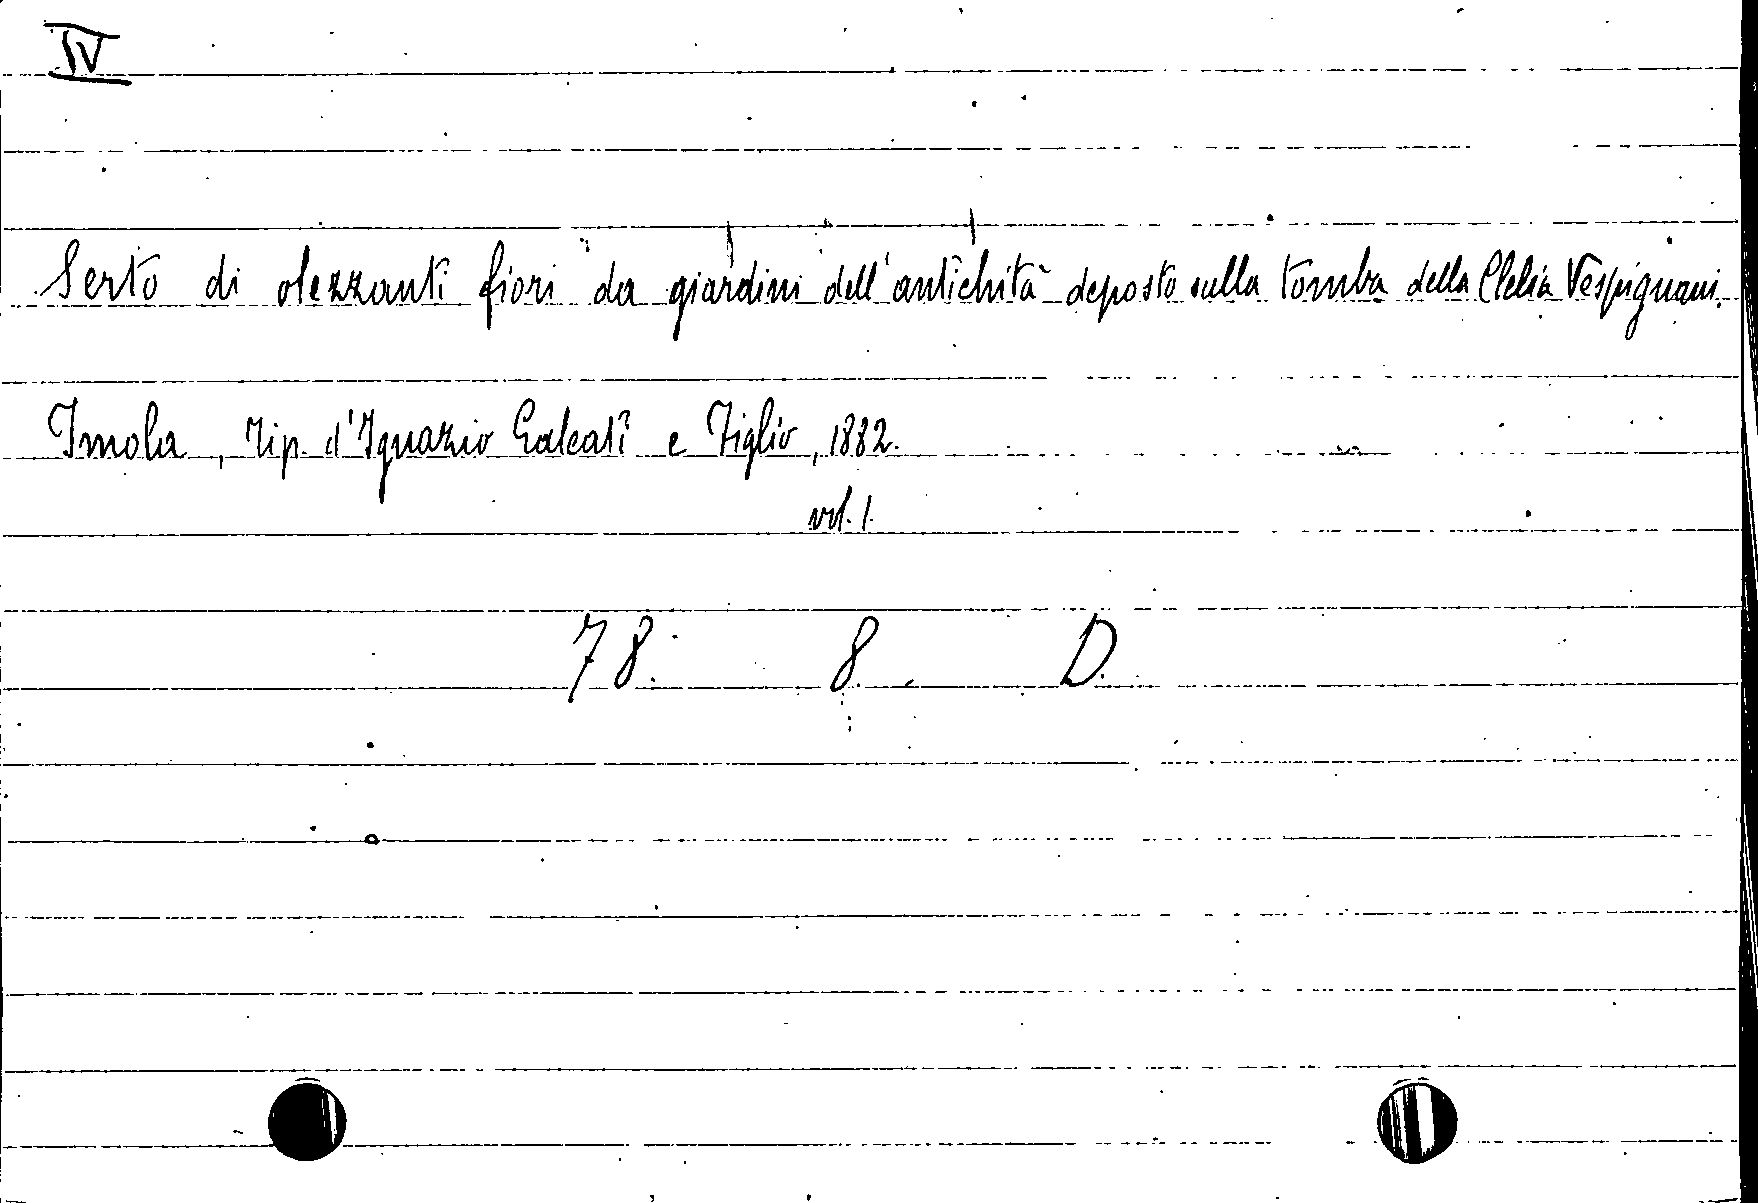 IV
Serto di olezzanti fiori da giardini dell'antichità deposto sulla tomba della Clelia Vespignani.
Imola, Tip. d'Ignazio Galeati e Figlio, 1882.
vol. 1.
78. 8. D.